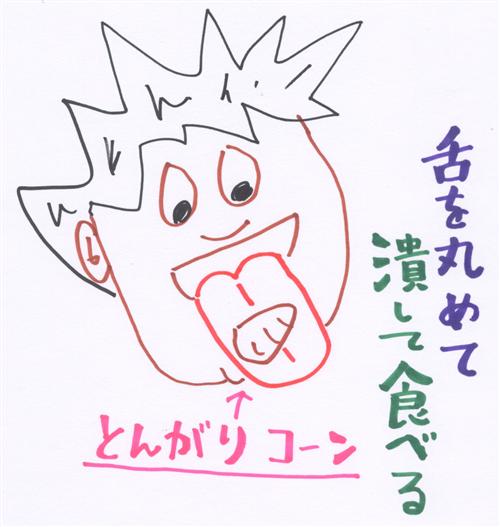 舌を丸めて
潰して食べる
とんがりコーン